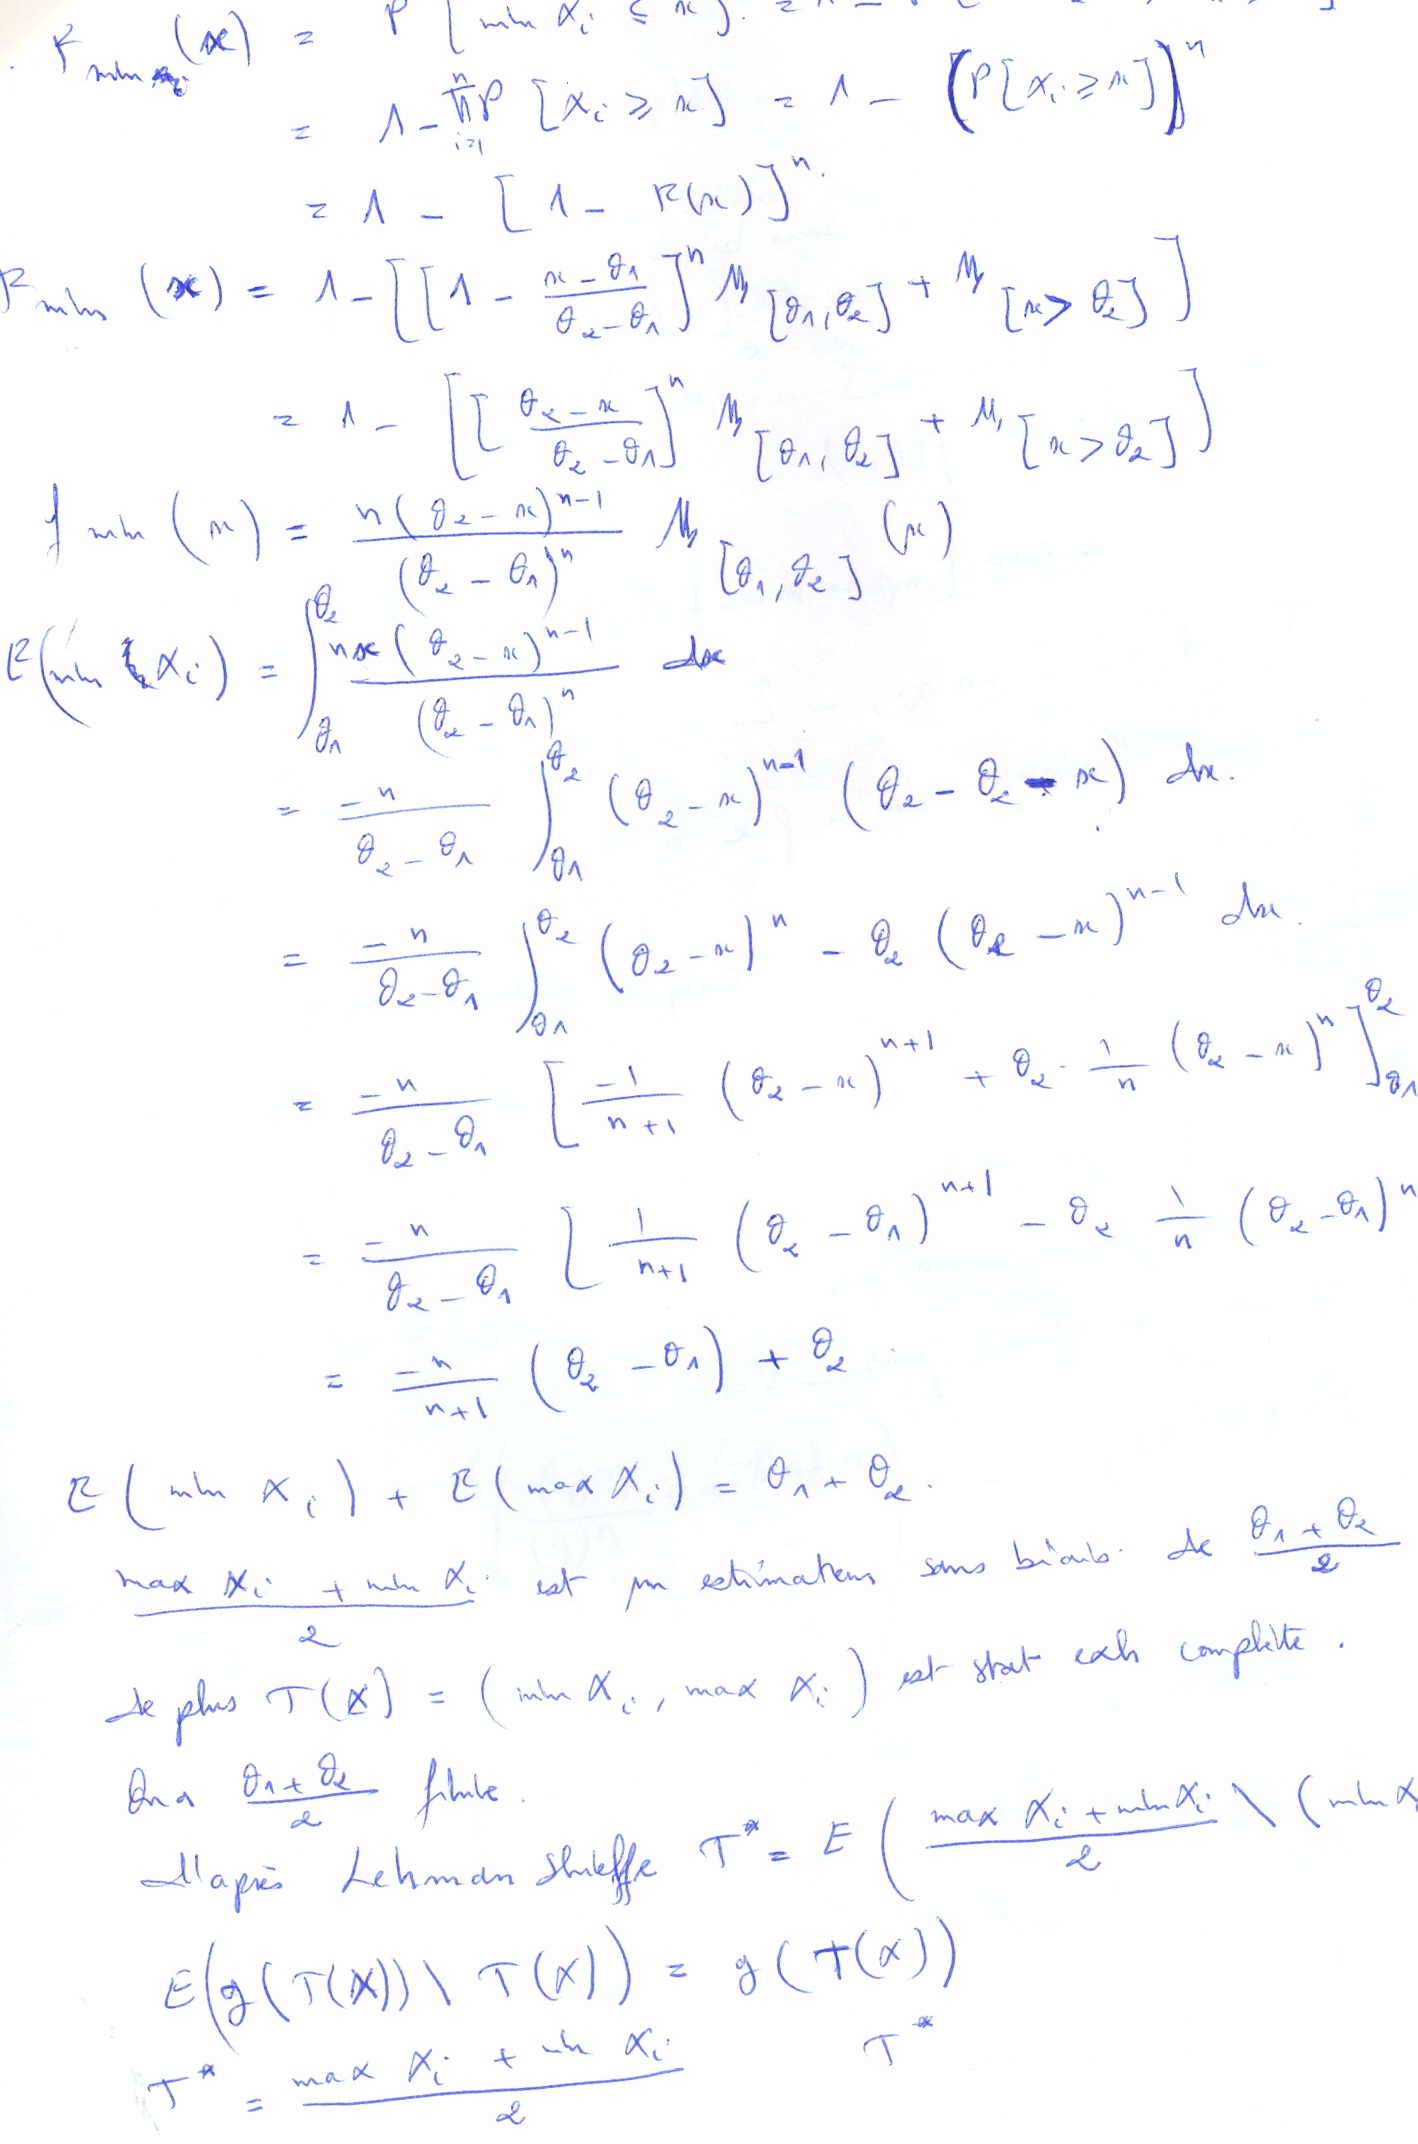 F_{min X_i}(x) = P[min X_i ≤ x]. = 1 -
= 1 - ∏_{i=1}^{n} P[X_i ≥ x] = 1 - (P[X_i ≥ x])^n
= 1 - [1 - F(x)]^n.
F_{min}(x) = 1 - [[1 - \frac{x - θ_1}{θ_2 - θ_1}]^n 𝟙_{[θ_1, θ_2]} + 𝟙_{[x > θ_2]}]
= 1 - [[\frac{θ_2 - x}{θ_2 - θ_1}]^n 𝟙_{[θ_1, θ_2]} + 𝟙_{[x > θ_2]}]
f_{min}(x) = \frac{n(θ_2 - x)^{n-1}}{(θ_2 - θ_1)^n} 𝟙_{[θ_1, θ_2]}(x)
E(min X_i) = ∫_{θ_1}^{θ_2} \frac{nx(θ_2 - x)^{n-1}}{(θ_2 - θ_1)^n} dx
= \frac{-n}{θ_2 - θ_1} ∫_{θ_1}^{θ_2} (θ_2 - x)^{n-1} (θ_2 - θ_2 - x) dx.
= \frac{-n}{θ_2 - θ_1} ∫_{θ_1}^{θ_2} (θ_2 - x)^n - θ_2 (θ_2 - x)^{n-1} dx.
= \frac{-n}{θ_2 - θ_1} [\frac{-1}{n+1} (θ_2 - x)^{n+1} + θ_2 · \frac{1}{n} (θ_2 - x)^n]_{θ_1}^{θ_2}
= \frac{-n}{θ_2 - θ_1} [\frac{1}{n+1} (θ_2 - θ_1)^{n+1} - θ_2 \frac{1}{n} (θ_2 - θ_1)^n
= \frac{-n}{n+1} (θ_2 - θ_1) + θ_2
E(min X_i) + E(max X_i) = θ_1 + θ_2.
\frac{max X_i + min X_i}{2} est un estimateur sans biais de \frac{θ_1 + θ_2}{2}
de plus T(X) = (min X_i, max X_i) est stat exh complète.
On a \frac{θ_1 + θ_2}{2} finie.
d'après Lehman Shieffe T^* = E(\frac{max X_i + min X_i}{2} \ (min X_i
E(g(T(X)) \ T(X)) = g(T(X))
T^* = \frac{max X_i + min X_i}{2} T^*